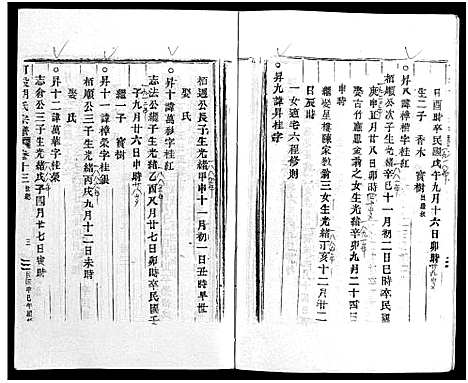 日酉時卒民國戊午九月十六日卯時
生二子 香木 寶樹出繼叔
○昇八諱樟楷字桂紅
栢順公次子生光緒辛巳十一月初二日巳時卒民國
庚申五月廿八日卯時
娶古竹應思
翁之女生光緒辛卯九月二十四
申時
繼娶星樓陳家敎翁三女生光緒丁亥十二月廿二
日辰時
一女適老六程修則
○昇九諱昇桂字
栢週公長子生光緒甲申十一月初一日丑時早世
娶氏
○昇十諱萬彩字桂
志法公繼子生光緒乙酉八月廿七日卯時卒民國壬
子九月廿六日申時
繼一子 寶樹
○昇十一諱樟榮字桂銀
栢順公三子生光緒丙戌九月十二日未時
娶氏
○昇十二諱萬華字桂榮
志俞公三子生光緒戊子四月廿七日寅時
胡氏宗譜 卷十三
三
辛巳年